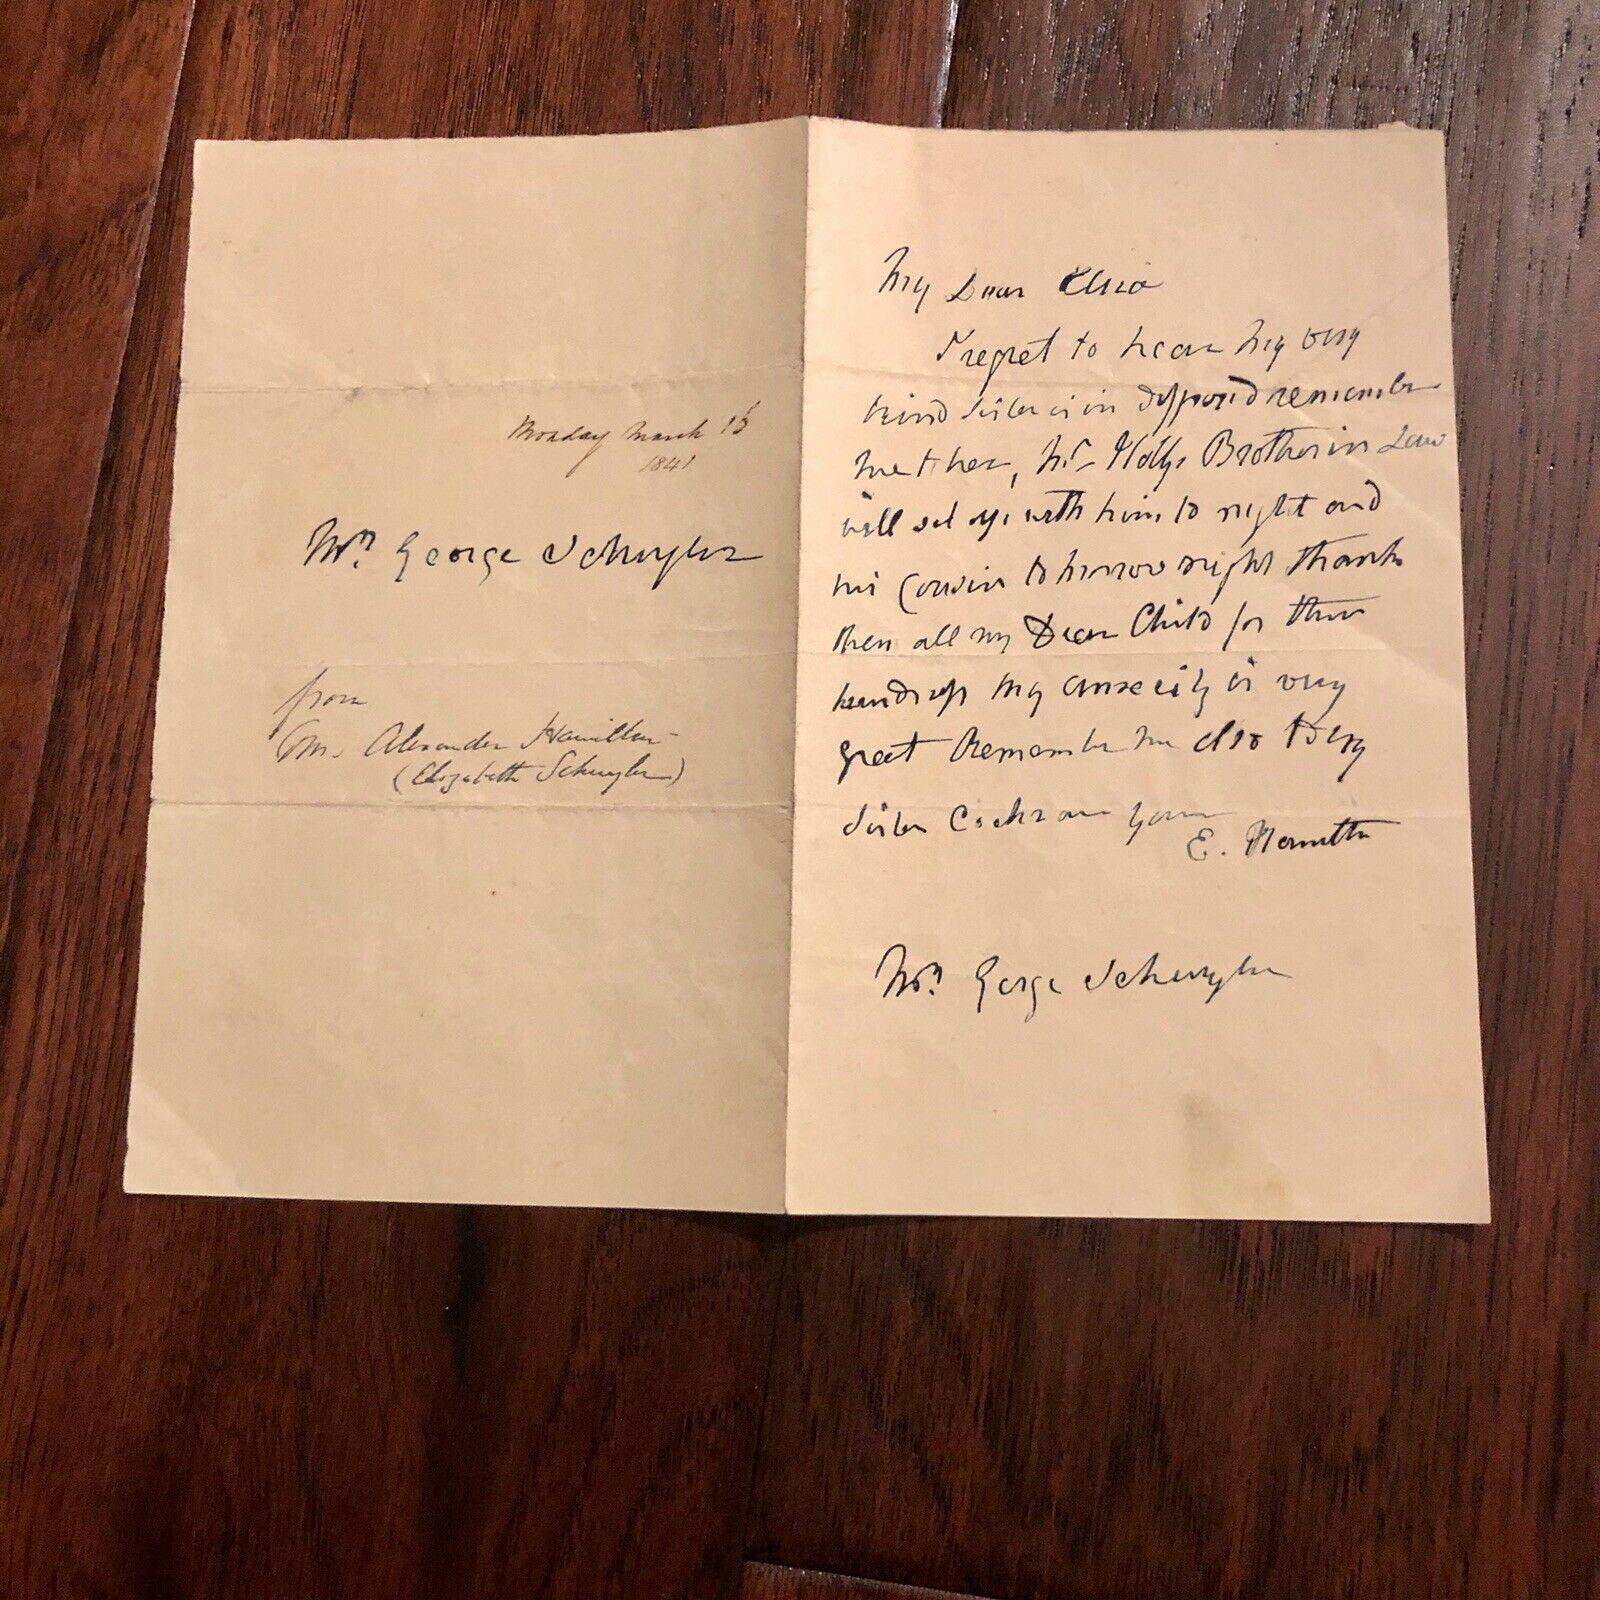 Monday March 15
1841
Mrs. George Schuyler
from
Mrs. Alexander Hamilton
(Elizabeth Schuyler)
My Dear Eliza
I regret to hear my very
kind Sister is in remember
me to her, Mr. Brother in Law
will set up with him to night and
to morrow night thank
them all my Dear Child for their
kindness my anxiety is very
great Remember me also to my
Sister Cochran yours
E. Hamilton
Mrs. George Schuyler